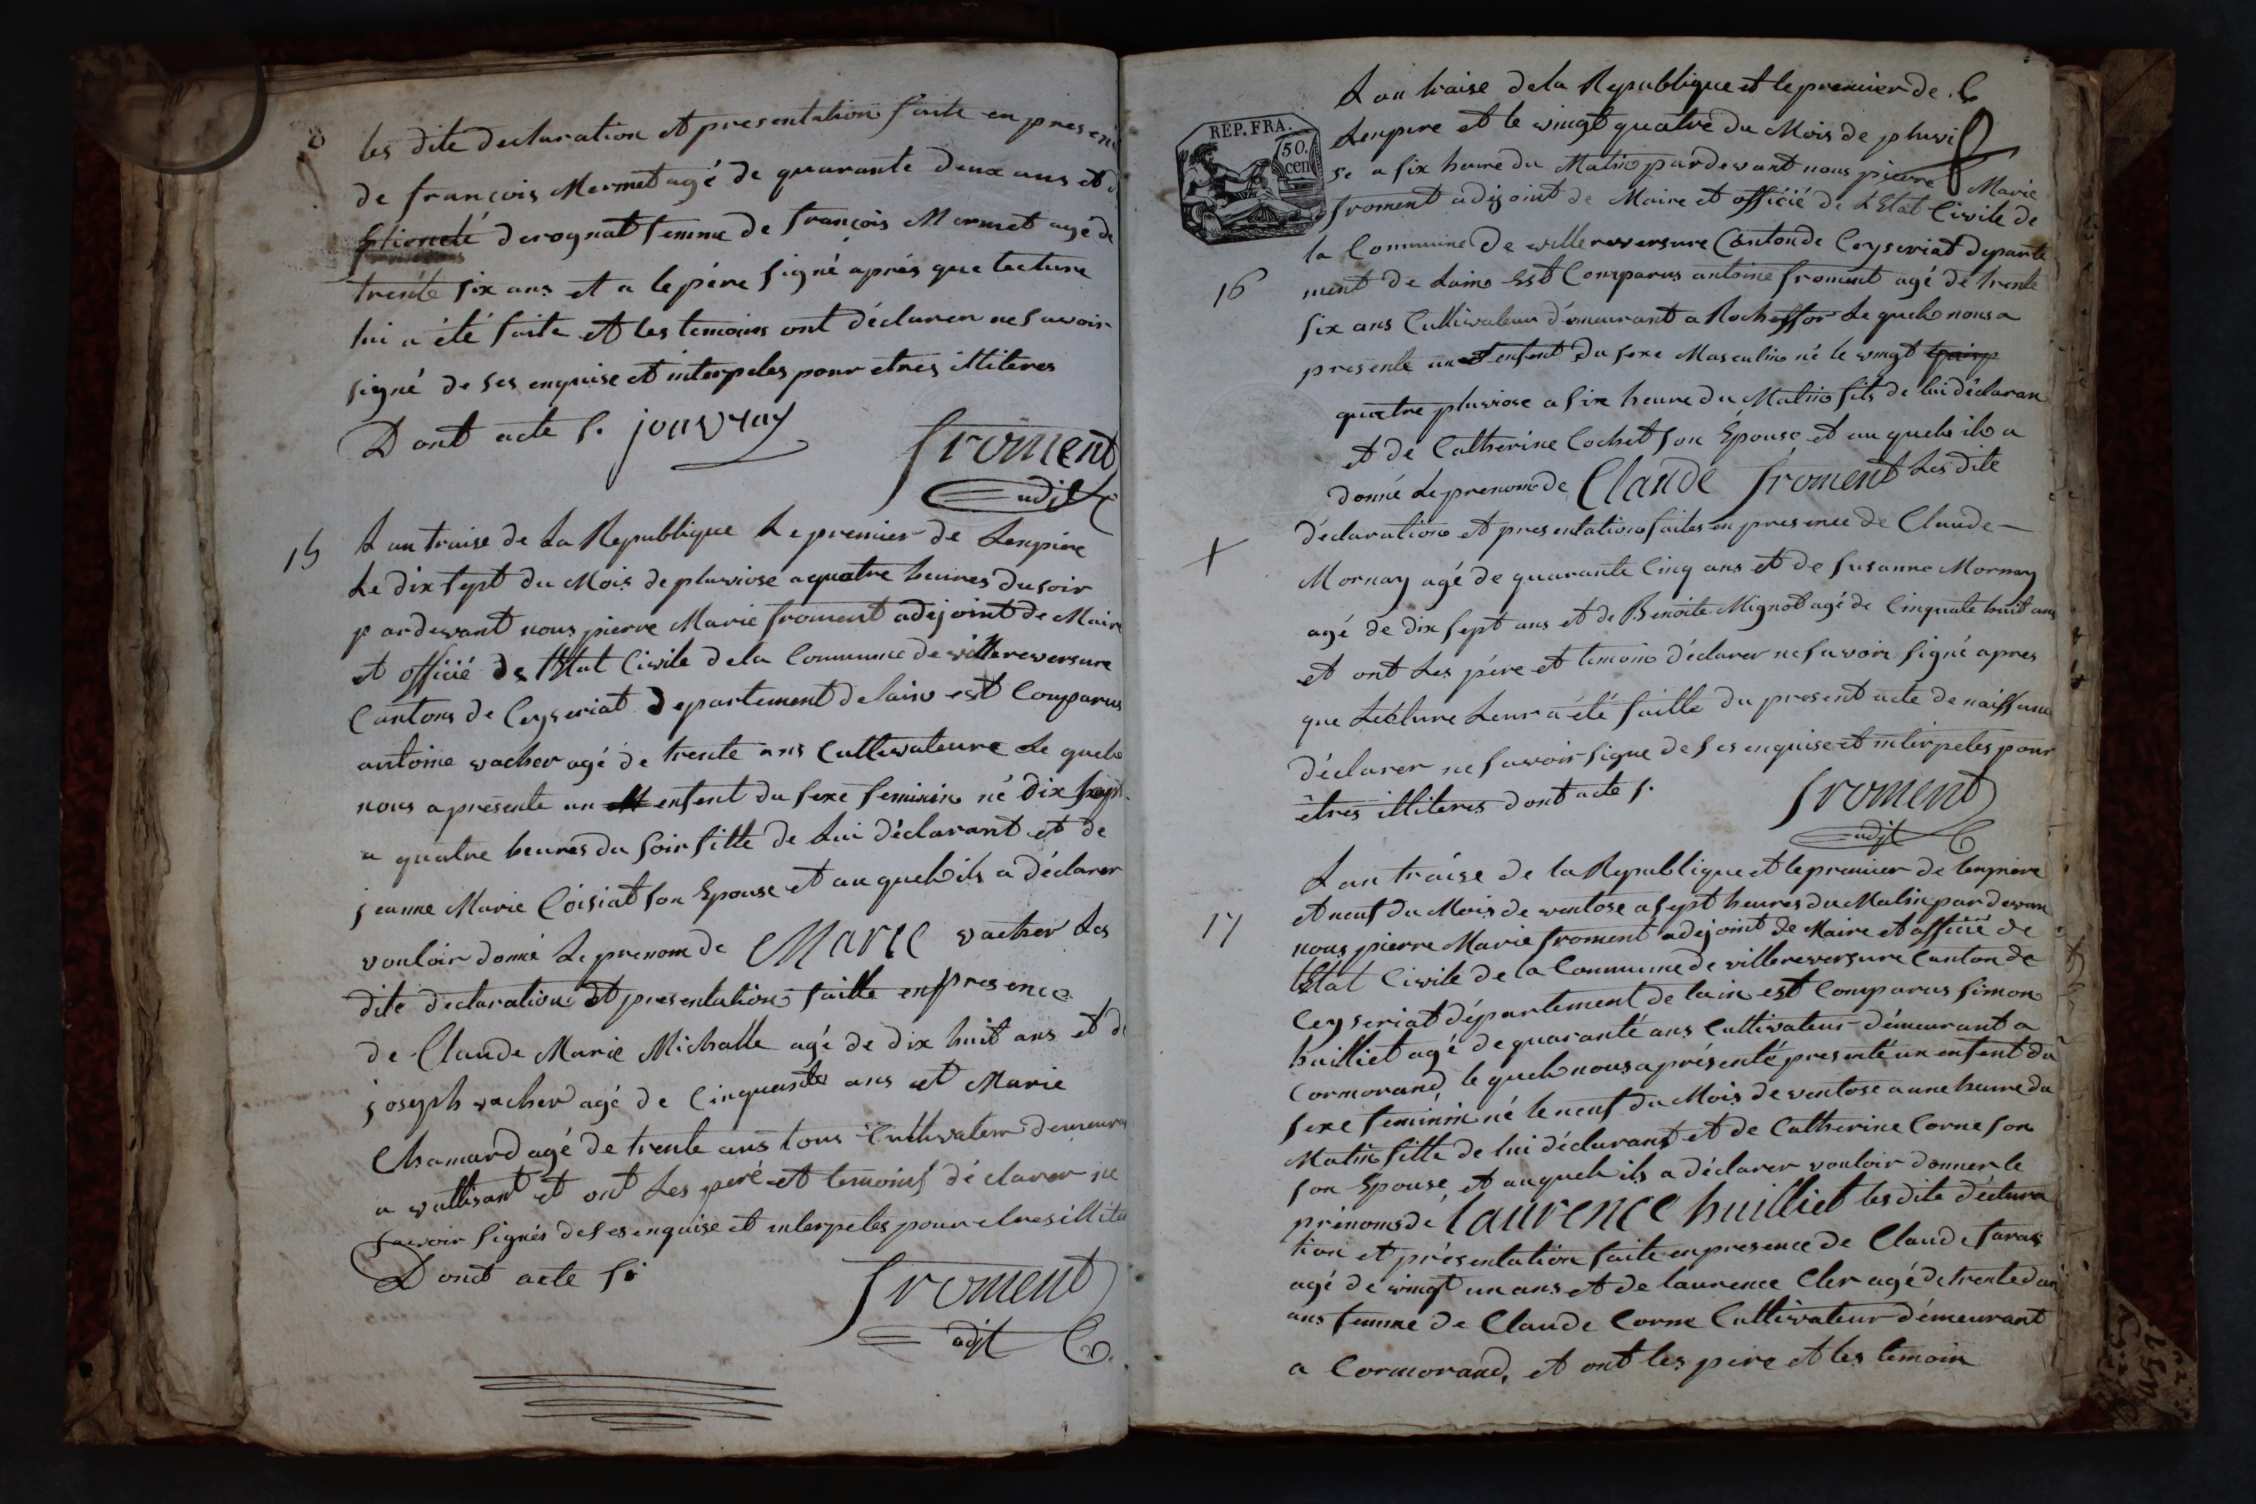 les dite declaration et presentation faite en presen
de françois Mermet agé de quarante deux ans et d
derognat femme de françois Mermet agé de
trente six ans et a le père signé aprés que lecture
lui a été faite et les temoins ont déclarer ne savoir
signé de ses enquise et interpeles pour etres illiteres
Dont acte s. jouvray
froment
adjt
15
Lan traise de La Republique Le premier de Lenpire
Le dix sept du Mois de pluviose a quatre heures du soir
pardevant nous pierre Marie froment adejoint de Maire
et officié de lEtat Civile de la Commune de villereversure
Cantons de Ceyseriat Departement de lain est Comparus
antoine vacher agé de trente ans Cultivateure Le quele
nous a presente un enfent du sexe feminin né dix sept
a quatre heures du soir fille de Lui déclarant et de
jeanne Marie Coisiat son Epouse et au quele ils a déclarer
vouloir donné Le prenom de Marie vacher Les
dite declaration et presentation faitte en presence
de Claude Marie Michalle agé de dix huit ans et d
joseph vacher agé de Cinquante ans et Marie
Chamard agé de trente ans tous Cultivatem demeura
a vallisant et ont Les peré et temoins déclarer ne
savoir signés de ses enquise et interpeles pour etres illite
Dont acte s.
froment
adjt
REP. FRA.
50. cen
Lan traise de la Republique et le premier de
Lenpire et le vingt quatre du Mois de pluvi
se a six heure du Matin pardevant nous pierre Marie
froment adijoint de Maire et officié de LEtat Civile de
la Commune de villereversure Canton de Ceyseriat departe
16
ment de Lain Est Comparus antoine froment agé de trente
six ans Cultivateur démeurant a Rocheffor Le quele nous a
presente un enfent du sexe Masculin né le vingt
quatre pluviose a six heure du Matin fils de lui déclaran
et de Catherine Cochet son Épouse et au quele il a
donné Le prenom de Claude froment Les dite
déclaration et presentation faites en presence de Claude
Mornay agé de quarante Cinq ans et de Susanne Mornay
agé de dix sept ans et de Benoite Mignot agé de Cinquate huit ans
et ont Les pére et temoin déclarer ne savoir signé apres
que Lecture Leur a été faitte du present acte de naissanc
déclarer ne savoir signe de ses enquise et interpeles pour
étres illiteres dont acte s.
froment
adjt
Lan traise de la Republique et le premier de lenpire
et neuf du Mois de ventose a sept heures du Matin par devan
17
nous pierre Marie froment adejoint de Maire et officié de
lEtat Civile de la Commune de villereversure Canton de
Ceyseriat département de lain est Comparus simon
huilliet agé de quaranté ans Cultivateur démeurant a
Cormorand le quele nous a présenté presenté un enfent du
sexe feminin né le neuf du Mois de ventose a une heure du
Matin fille de lui déclarant et de Catherine Corne son
son Epouse et au quele ils a déclarer vouloir donner le
prénoms de laurence huilliet les dite déclara
tion et présentation faite en presence de Claude
agé de vingt un ans et de laurence Cler agé de trente
ans femme de Claude Corne Cultivateur démeurant
a Cormorand, et ont les pere et les temoin